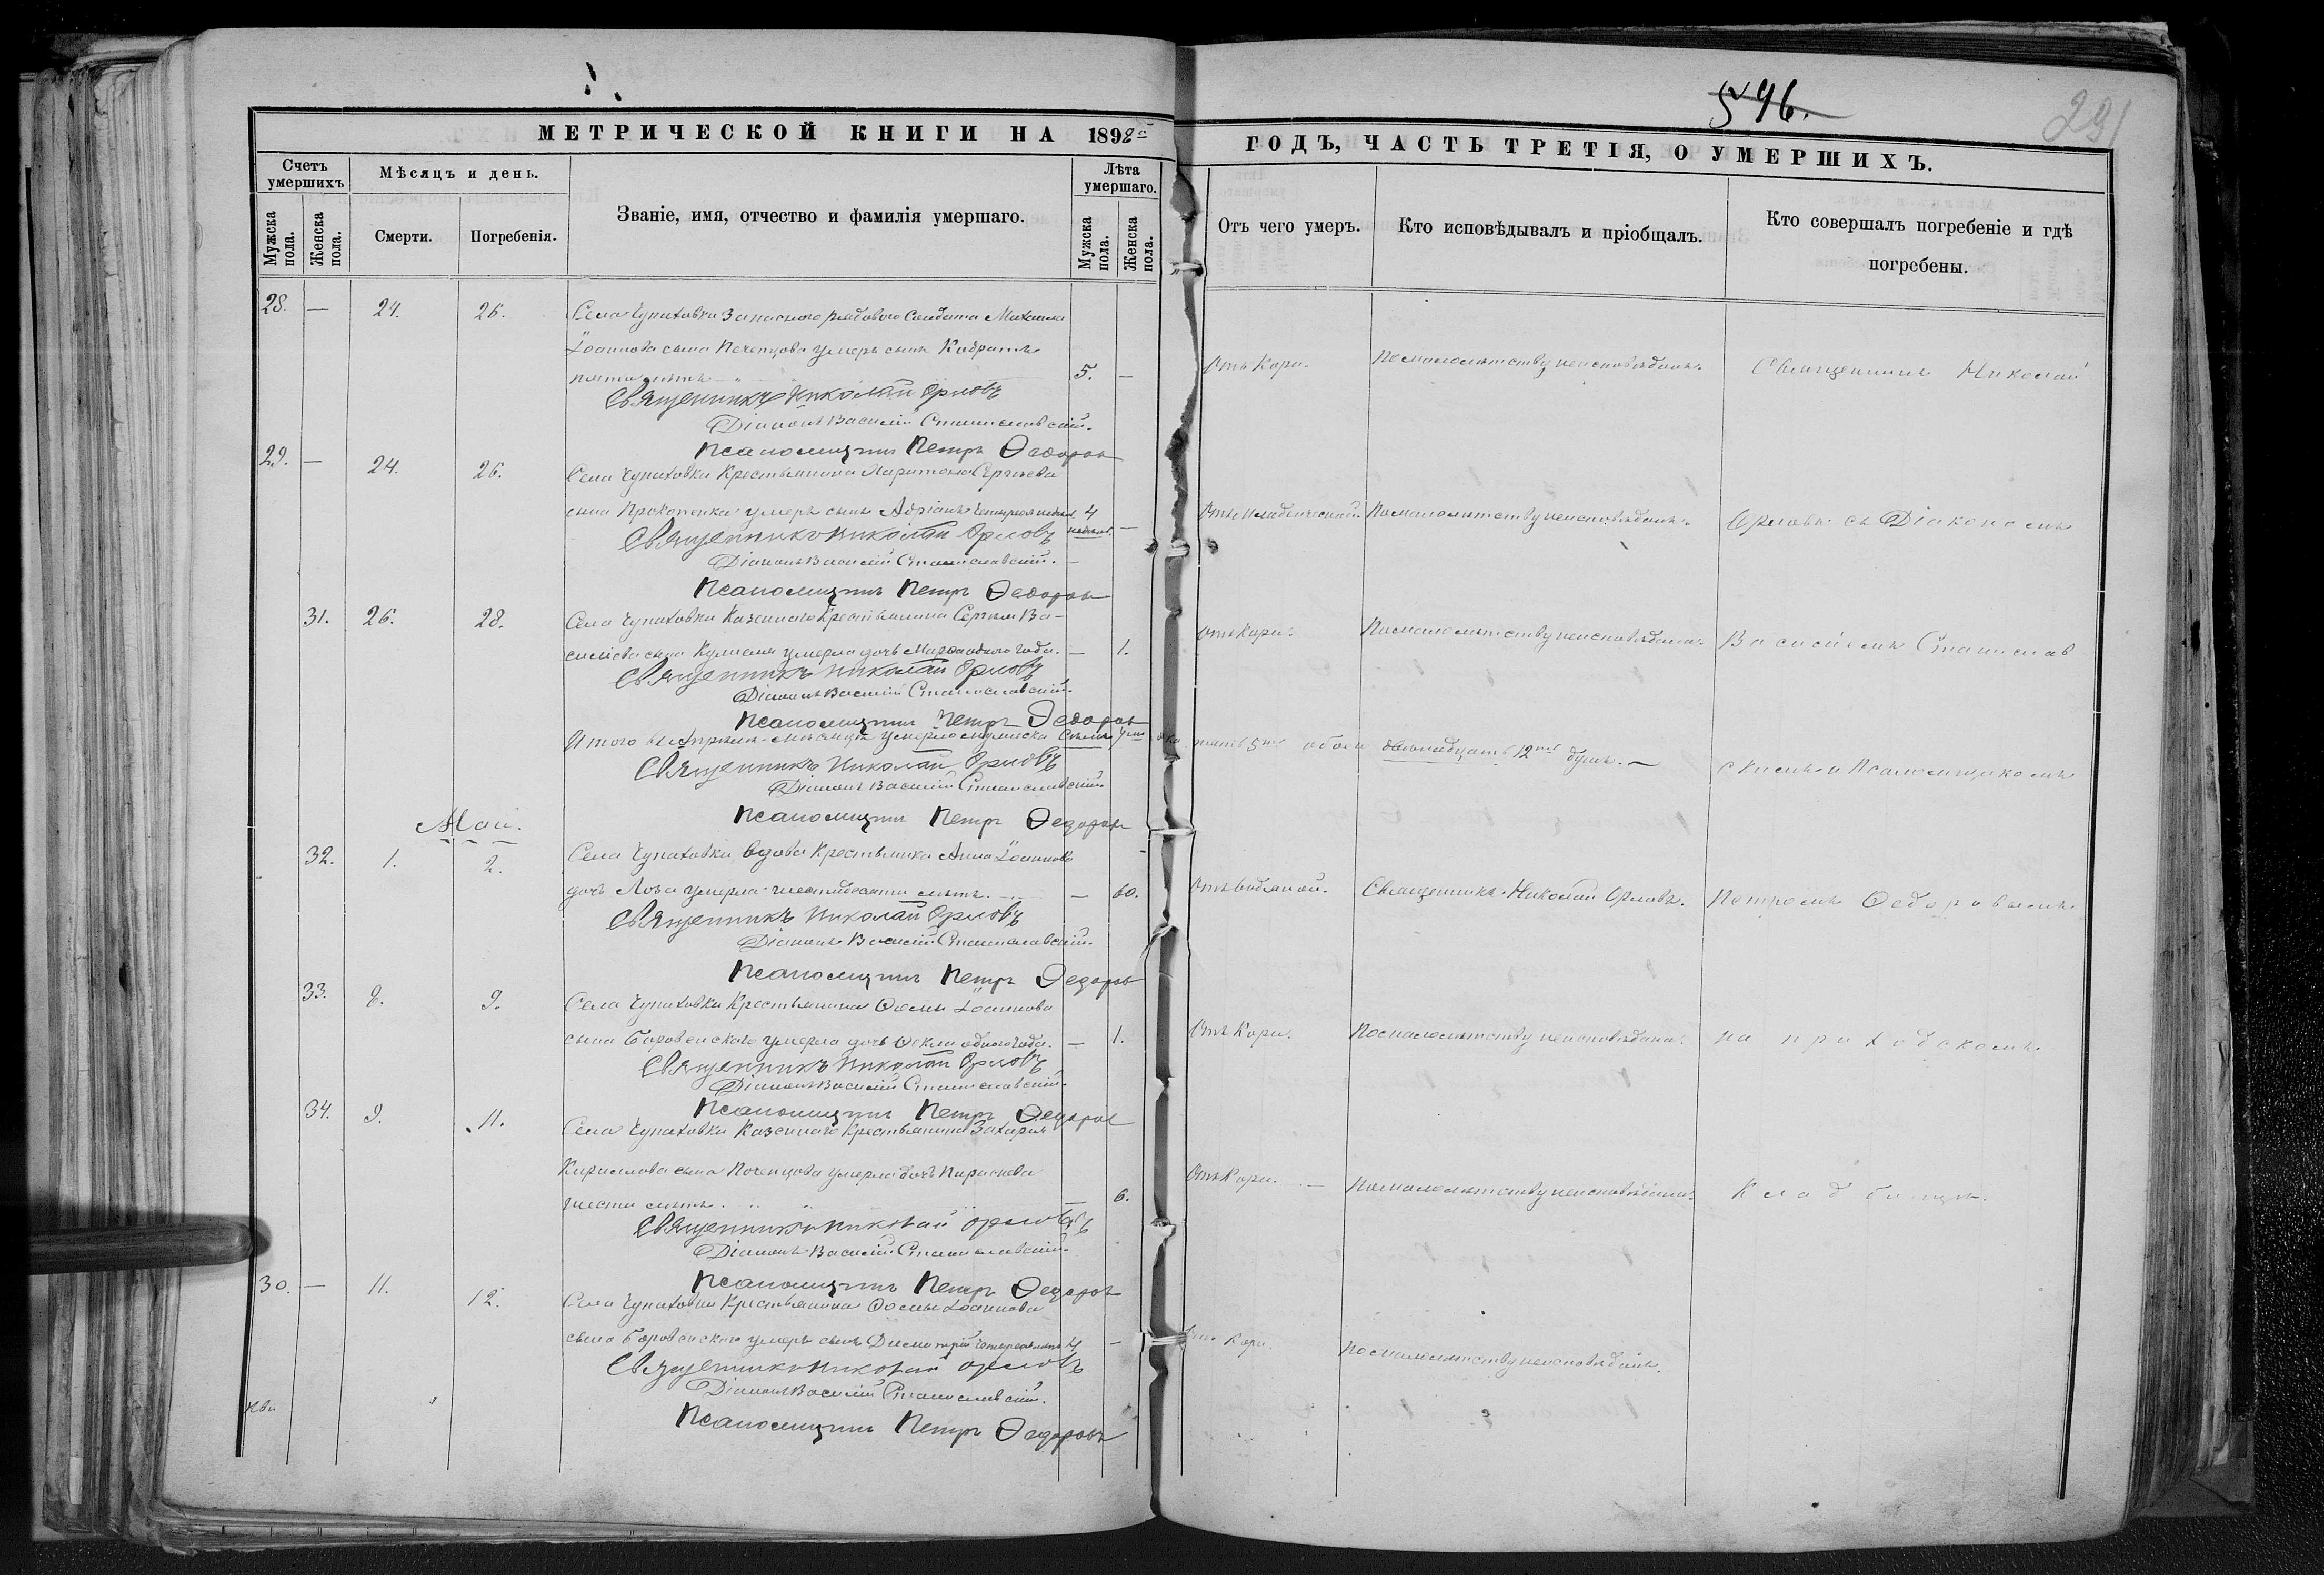 МЕТРИЧЕСКОЙ КНИГИ НА 1892й
Счетъ умершихъ
Мѣсяцъ и день.
Званіе, имя, отчество и фамилія умершаго.
Лѣта умершаго.
Мужска пола.
Женска пола.
Смерти.
Погребенія.
Мужска пола.
Женска пола.
28. — 24. 26. Села Чупаховки Запасного рядового Солдата Михаила
Іоаннова сына Печенцова умеръ сынъ Кодратъ
пяти лѣтъ 5. —
Священникъ Николай Орловъ
Діаконъ Василій Станиславскій.
Псаломщикъ Петръ Ѳедоровъ
29. — 24. 26. Села Чупаховки Крестьянина Харитона Сергіева
сына Прокопенка умеръ сынъ Адріанъ четырехъ недѣль 4 недѣл. —
Священникъ Николай Орловъ
Діаконъ Василій Станиславскій.
Псаломщикъ Петръ Ѳедоровъ
31. 26. 28. Села Чупаховки Казеннаго Крестьянина Сергія Ва-
силіева сына умерла дочь одного года. — 1.
Священникъ Николай Орловъ
Діаконъ Василій Станиславскій.
Псаломщикъ Петръ Ѳедоровъ
Итого въ Апрѣлѣ мѣсяцѣ умерло мужеска семь 7мь
Священникъ Николай Орловъ
Діаконъ Василій Станиславскій
Псаломщикъ Петръ Ѳедоровъ
Май.
32. 1. 2. Села Чупаховки, вдова Крестьянка Анна Іоаннова
дочь Лоза умерла шестидесяти лѣтъ. — 60.
Священникъ Николай Орловъ
Діаконъ Василій Станиславскій.
Псаломщикъ Петръ Ѳедоровъ
33. 8. 9. Села Чупаховки Крестьянина Ѳомы Іоаннова
сына Боровенскаго умерла дочь Ѳекла одного года. — 1.
Священникъ Николай Орловъ
Діаконъ Василій Станиславскій.
Псаломщикъ Петръ Ѳедоровъ
34. 9. 11. Села Чупаховки Казеннаго Крестьянина Захарія
Кириллова сына Поченцова умерла дочь Параскева
шести лѣтъ. — 6.
Священникъ Николай Орловъ
Діаконъ Василій Станиславскій.
Псаломщикъ Петръ Ѳедоровъ
30. — 11. 12. Села Чупаховки Крестьянина Ѳомы Іоаннова
сына Боровенскаго умеръ сынъ Димитрій четырехъ лѣтъ 4 —
Священникъ Николай Орловъ
Діаконъ Василій Станиславскій.
Псаломщикъ Петръ Ѳедоровъ
596.
291
ГОДЪ, ЧАСТЬ ТРЕТІЯ, О УМЕРШИХЪ.
Отъ чего умеръ.
Кто исповѣдывалъ и пріобщалъ.
Кто совершалъ погребеніе и гдѣ погребены.
Отъ Кори. По малолѣтству неисповѣданъ. Священникъ Николай
Отъ младенческой По малолѣтству неисповѣданъ. Орловъ съ Діакономъ
Отъ Кори. По малолѣтству неисповѣдана. Василіемъ Станислав
5ть обоего двѣнадцать 12ть душъ. —
скимъ и Псаломщикомъ
Отъ водяной. Священникъ Николай Орловъ. Петромъ Ѳедоровымъ
Отъ Кори. По малолѣтству неисповѣдана. на приходскомъ
Отъ Кори. — По малолѣтству неисповѣдана. Кладбищѣ.
Отъ Кори. По малолѣтству неисповѣданъ.